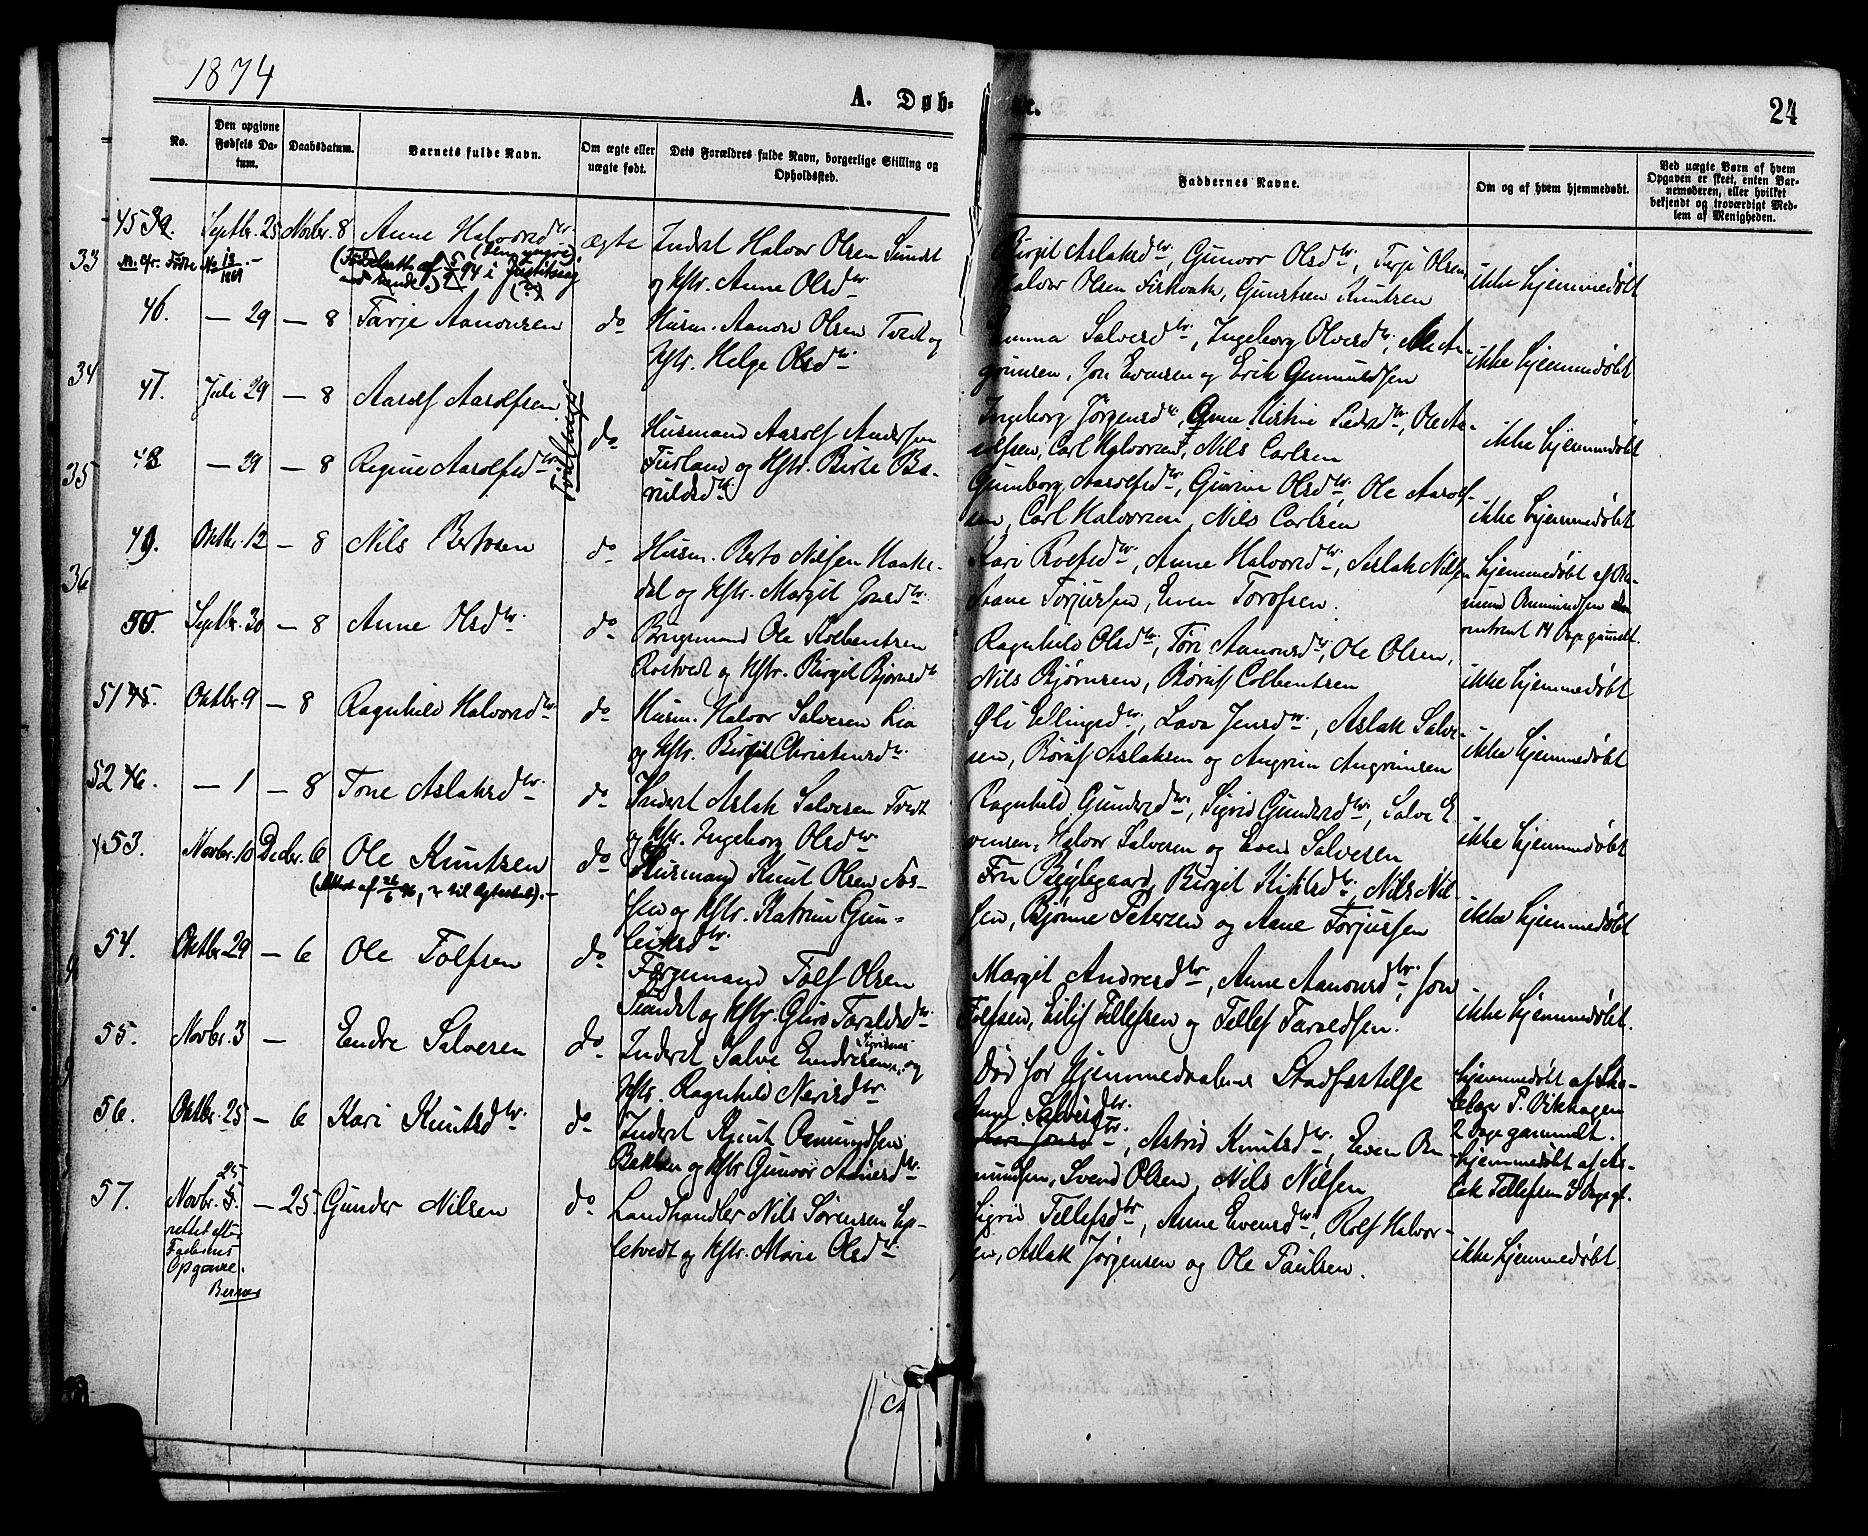 1874
A. Døb-
te.
24
No.
Den opgivne Fødsels Da-
tum.
Daabsdatum.
Barnets fulde Navn.
Om ægte eller
uægte født.
Dets Forældres fulde Navn, borgerlige Stilling og
Opholdssted.
Faddernes Navne.
Om og af hvem hjemmedøbt.
Ved uægte Børn af hvem
Opgaven er skeet, enten Bar-
nemoderen, eller hvilket
bekjendt og troværdigt Med-
lem af Menigheden.
45 39. Septbr. 25 Novbr. 8 Anne Halvorsdtr. ægte Inderst Halvor Olsen
og Hstr. Anne Olsdtr
Birgit Aslaksdtr, Gunvor Olsdtr, Terje Olsen,
Halvor Olsen, Gunsten Knutsen
ikke hjemmedøbt
46. — 29 — 8 Tarje Aanonsen do Husm. Aanon Olsen Tvedt og
Hstr. Helge Olsdtr
Salvesdtr, Ingeborg Olvesdtr,
Jon Evensen og Erik Gunnuldsen
ikke hjemmedøbt
47. Juli 29 — 8 Aasolf Aasolfsen
Tvillinger
do Husmand Aasolf Andersen
og Hstr. Birte Ba-
ruldsdtr
Ingeborg Jørgensdtr, Ole Aa-
solfsen, Carl Halvorsen, Nils Carlsen
ikke hjemmedøbt
48 — 29 — 8 Regine Aasolfsdtr.
Gunborg Aasolfsdtr, Gurine Olsdtr, Ole Aasolf-
sen, Carl Halvorsen, Nils Carlsen
ikke hjemmedøbt
49. Oktbr. 12 — 8 Nils Bertosen do Husm. Berto Nilsen Haake-
dal og Hstr. Margit Jonsdtr.
Kari Rolfsdtr, Anne Halvorsdtr, Aslak Nilsen
Aane Torjussen, Even Torofsen.
hjemmedøbt af
omtrent 14 Dage gammelt.
50. Septbr. 30 — 8 Anne Olsdtr. do Brugsmand Ole Kolbentsen
Rostvedt og Hstr. Birgit Bjørnsdtr
Ragnhild Olsdtr, Tøri Aanonsdtr, Ole Olsen,
Nils Bjørnsen, Børuf Colbentsen
ikke hjemmedøbt
51 45. Oktbr. 9 — 8 Ragnhild Halvorsdtr do Husm. Halvor Salvesen Lia
og Hstr. Birgit Christensdtr.
Øli Ellingsdtr, Lava Jensdtr, Aslak Salve-
sen, Børuf Aslaksen og Angrim Angrimsen
ikke hjemmedøbt
52 46. — 1 — 8 Tone Aslaksdtr. do Inderst Aslak Salvesen Tvedt
og Hstr. Ingeborg Olsdtr
Ragnhild Gundersdtr, Sigrid Gundersdtr, Salve E
vensen, Halvor Salvesen og Even Salvesen
ikke hjemmedøbt
53. Novbr. 10 Decbr. 6 Ole Knutsen do Husmand Knut Olsen Fos-
sen og Hstr. Katrine Gun-
leiksdtr
Fru Bøylegaard, Birgit Kittilsdtr, Nils Nil-
sen, Bjønne Petersen og Aane Torjussen
ikke hjemmedøbt
54. Oktbr. 29 — 6 Ole Tolfsen do Færgemand Tolf Olsen
og Hstr. Guro Taraldsdtr.
Margit Andersdtr, Anne Aanonsdtr, Jon
Tolfsen, Eilif Tellefsen og Tellef Taraldsen.
ikke hjemmedøbt.
55. Novbr. 3 — Endre Salvesen do Inderst Salve Endresen og
Hstr. Ragnhild Nerisdtr
Død før Hjemmedaabens Stadfæstelse
hjemmedøbt af
P. Vikhagen
2 Dage gammelt.
56. Oktbr. 25 — 6 Kari Knutsdtr do Inderst Knut Osmundsen
Bakken og Hstr Gunvor
Anne Salvesdtr.
Astrid Knutsdtr, Even Os-
mundsen, Svend Olsen, Nils Nilsen
hjemmedøbt af As-
lak Tellefsen 3 Dage gl.
57. Novbr. 25
rettet efter
Faderens
Opgave.
— 25. Gunder Nilsen do Landhandler Nils Sørensen
og Hstr. Marie Olsdtr.
Sigrid Tellefsdtr, Anne Evensdtr, Rolf Halvor-
sen, Aslak Jørgensen og Ole Paulsen.
ikke hjemmedøbt
33
34
35
36